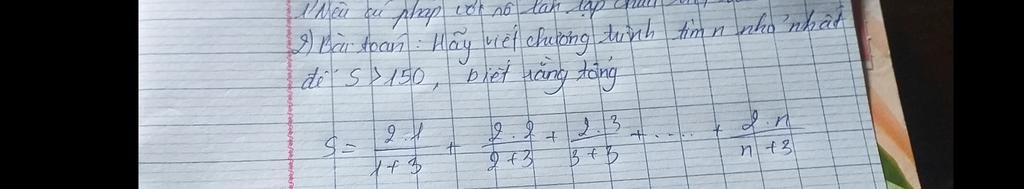 1) Nêu cú pháp với nó lần lặp chưa
2) Bài toán: Hãy viết chương trình tìm n nhỏ nhất
để S > 150, biết rằng tổng
S = \frac{2.1}{1+3} + \frac{2.2}{2+3} + \frac{2.3}{3+3} + ..... + \frac{2.n}{n+3}